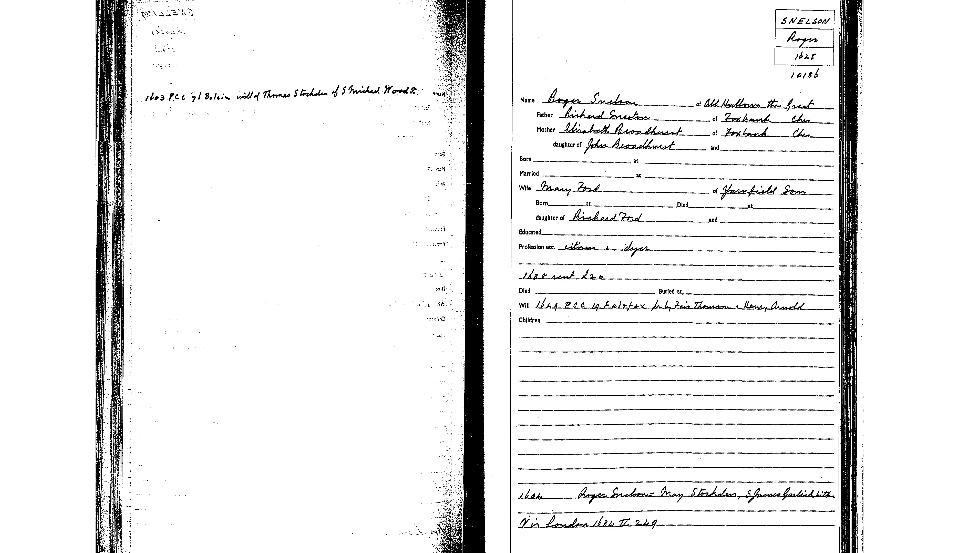 1603 P.C.C. 91 Bolein will of Thomas Stockden of S Michael Wood St.
SNELSON
Roger
1625
Name Roger Snelson of All Hallows the Great
Father Richard Snelson of Foxbank Ches
Mother Elizabeth Broadhurst of Foxbank Ches
daughter of John Broadhurst and
Born at
Married at
Wife Mary Ford of Som
Born at Died at
daughter of Richard Ford and
Educated
Profession etc. citizen & dyer
1638 rent £20
Died Buried at
Will 164 P.C.C. 19 Fairfax Thomson & Henry Arnold
Children
Roger Snelson = Mary Stockden, S James Garlickhith
Vis London 1634 II 249